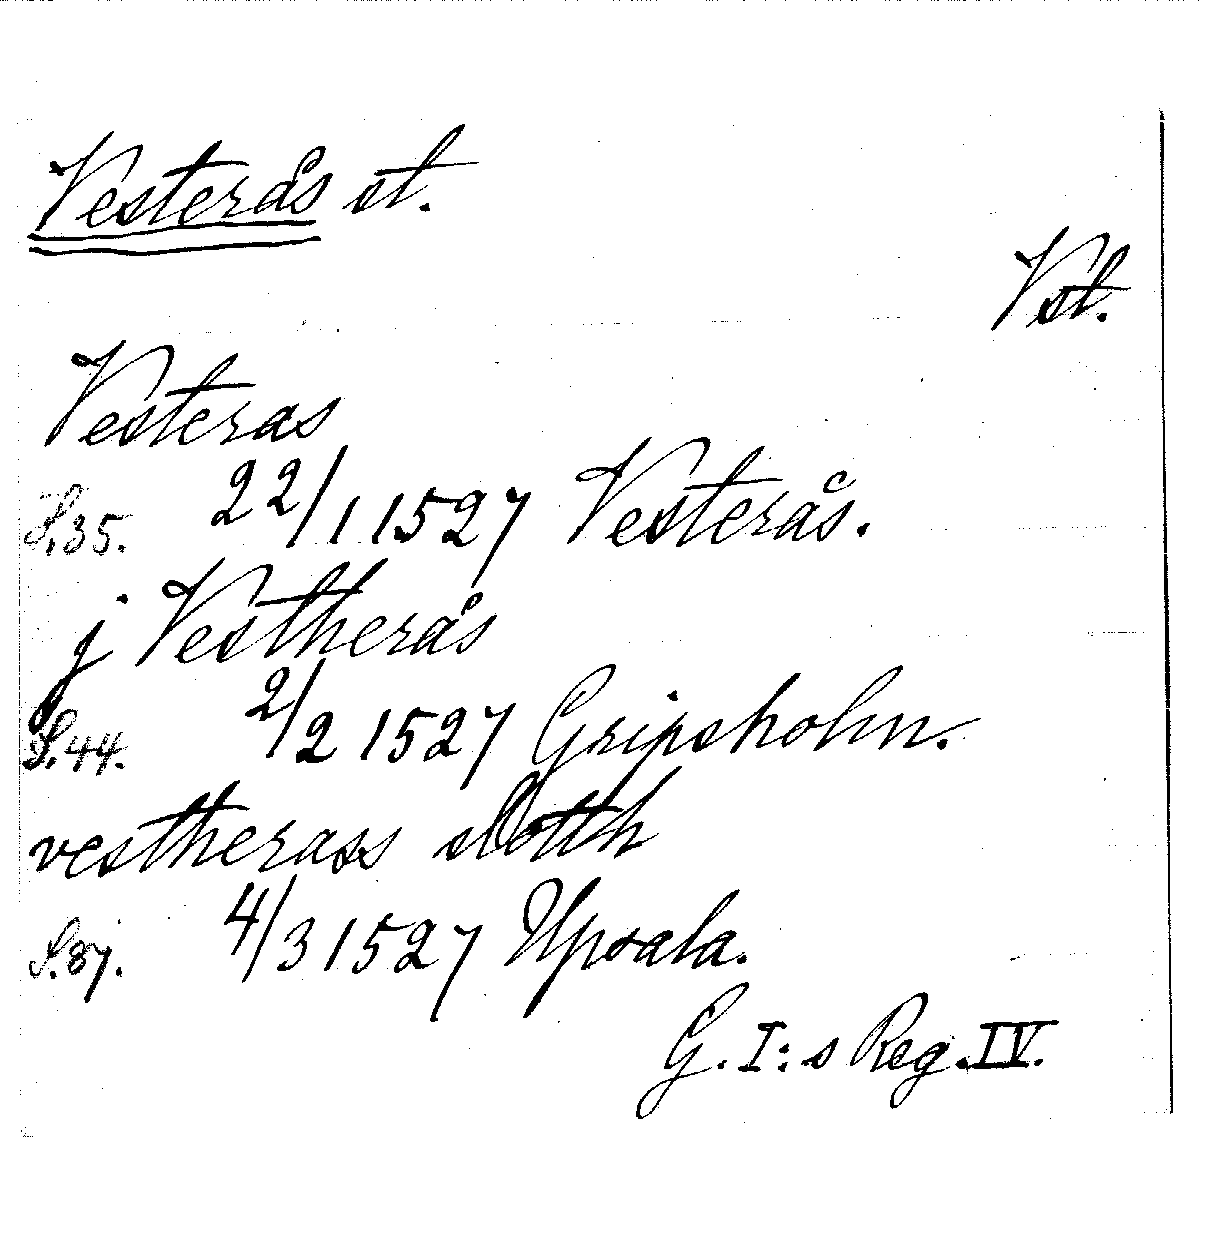 Vesterås st.
Vst.
Vesteras
S.35. 22/1 1527 Vesterås.
j Vestherås
S.44. 2/2 1527 Gripsholm.
vestherass slotth
S.87. 4/3 1527 Upsala.
G. I:s Reg. IV.